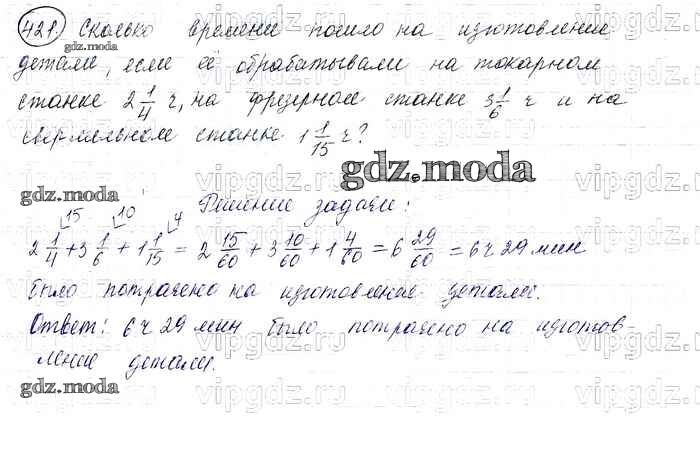 421. Сколько времени пошло на изготовление
gdz.moda
детали, если её обрабатывали на токарном
станке 2 1/4 ч, на фрезерном станке 3 1/6 ч и на
сверлильном станке 1 1/15 ч?
gdz.moda
gdz.moda
15 10 4 Решение задачи:
2 1/4 + 3 1/6 + 1 1/15 = 2 15/60 + 3 10/60 + 1 4/60 = 6 29/60 = 6 ч 29 мин
было потрачено на изготовление детали.
Ответ: 6 ч 29 мин было потрачено на изготов-
ление детали.
gdz.moda
vipgdz.ru vipgdz.ru vipgdz.ru